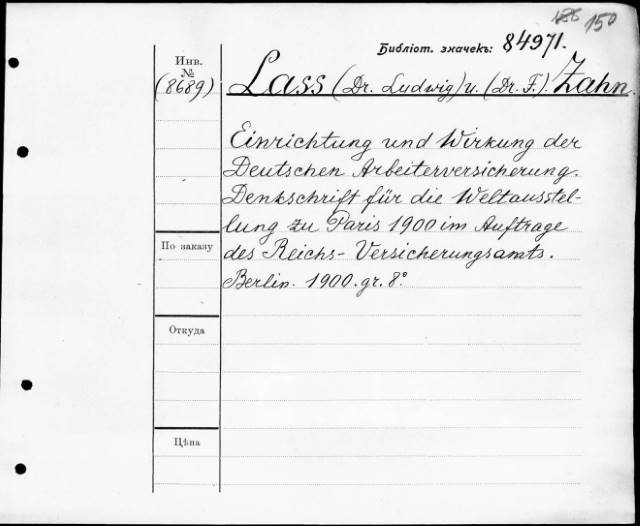 150
Библіот. значекъ: 84971.
Инв.
№
(8689)
Lass (Dr. Ludwig) u. (Dr. F.) Zahn.
Einrichtung und Wirkung der
Deutschen Arbeiterversicherung.
Denkschrift für die Weltausstel-
lung zu Paris 1900 im Auftrage
des Reichs-Versicherungsamts.
Berlin. 1900. gr. 8°
По заказу
Откуда
Цѣна